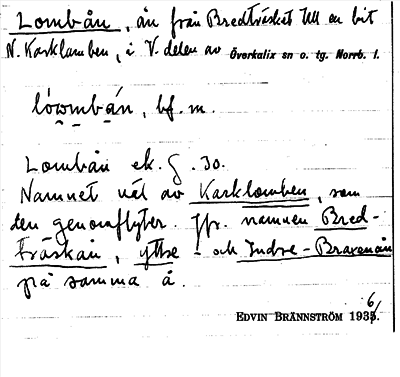 Lombån, ån från Bredträsket till en bit
N. Karklomben, i V. delen av Överkalix sn o. tg. Norrb. l.
lówmbán, bf. m.
Lombån ek. § .30.
Namnet väl av Karklomben, som
den genomflyter. Jfr. namnen Bred-
träskån, yttre - och Indre - Bravenån
på samma å.
EDVIN BRÄNNSTRÖM 1936